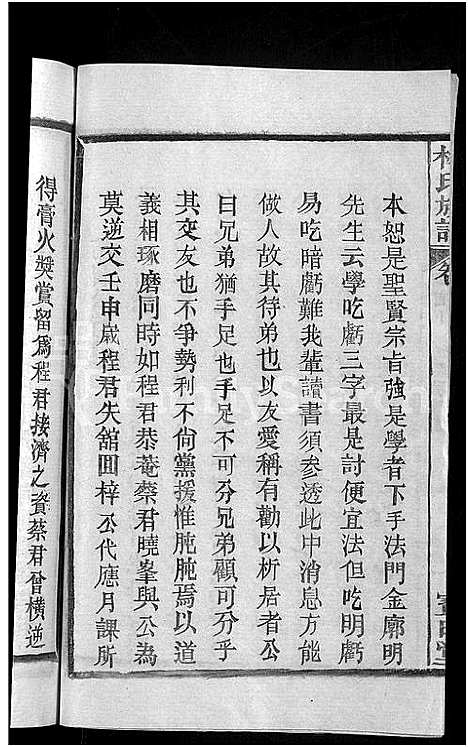 本恕是聖賢宗旨強是學者下手法門金廓明
先生云學吃虧三字最是討便宜法但吃明虧
易吃暗虧難我輩讀書須參透此中消息方能
做人故其待弟也以友愛稱有勸以析居者公
曰兄弟猶手足也手足不可分兄弟顧可分乎
其交友也不爭勢利不尙黨援惟肫肫焉以道
義相琢磨同時如程君恭菴蔡君曉峯與公為
莫逆交壬申歲程君失舘圓梓公代應月課所
得膏火奬賞留爲程君接濟之資蔡君曾橫逆